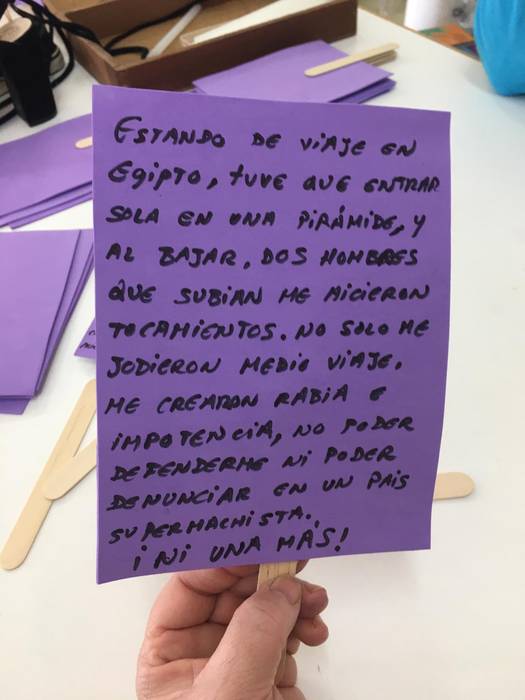 ESTANDO DE VIAJE EN
EGIPTO, TUVE QUE ENTRAR
SOLA EN UNA PIRÁMIDE, Y
AL BAJAR, DOS HOMBRES
QUE SUBIAN ME HICIERON
TOCAMIENTOS. NO SOLO ME
JODIERON MEDIO VIAJE.
ME CREARON RABIA E
IMPOTENCIA, NO PODER
DEFENDERME NI PODER
DENUNCIAR EN UN PAIS
SUPERMACHISTA.
¡NI UNA MÁS!